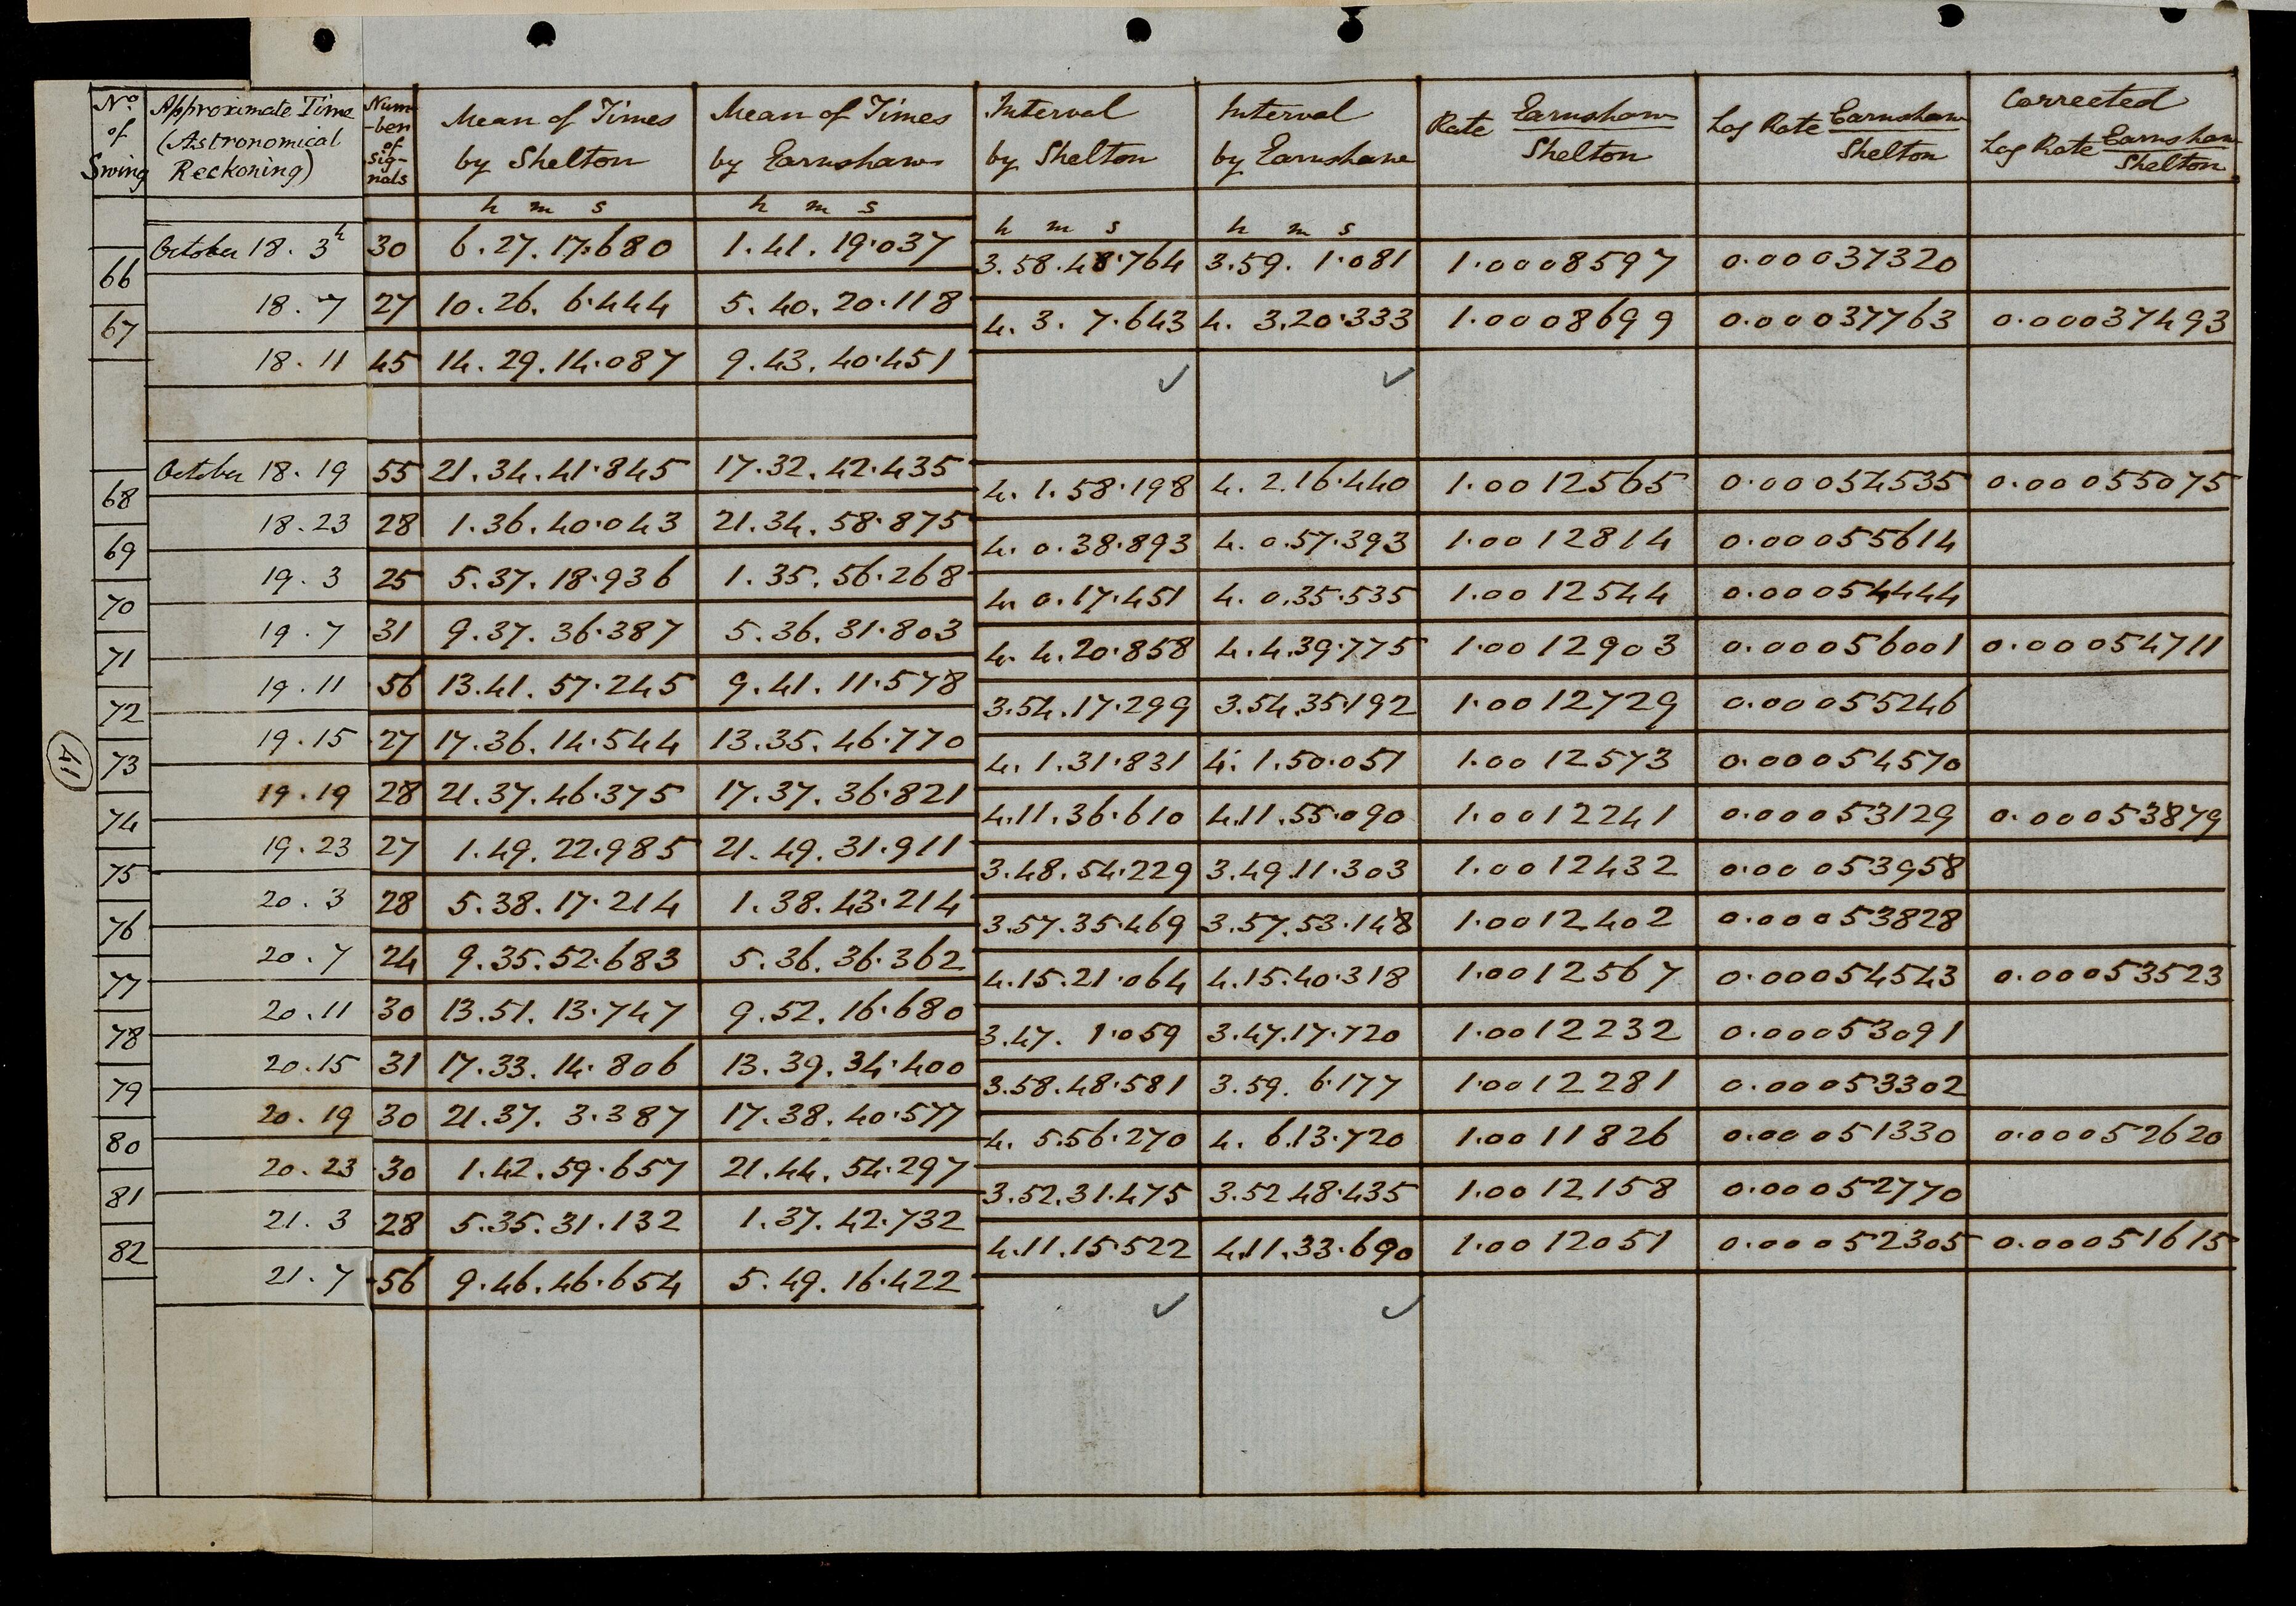 No. of Swing | Approximate Time (Astronomical Reckoning) | Num-ber of sig-nals | Mean of Times by Shelton | Mean of Times by Earnshaw | Interval by Shelton | Interval by Earnshaw | Rate Earnshaw / Shelton | Log Rate Earnshaw / Shelton | Corrected Log Rate Earnshaw / Shelton
h m s | h m s | h m s | h m s
October 18. 3h | 30 | 6.27.17.680 | 1.41.19.037
66 | 3.58.48.764 | 3.59. 1.081 | 1.0008597 | 0.00037320
18. 7 | 27 | 10.26. 6.444 | 5.40.20.118
67 | 4. 3. 7.643 | 4. 3.20.333 | 1.0008699 | 0.00037763 | 0.00037493
18. 11 | 45 | 14.29.14.087 | 9.43.40.451
✓ | ✓
October 18. 19 | 55 | 21.34.41.845 | 17.32.42.435
68 | 4. 1.58.198 | 4. 2.16.440 | 1.0012565 | 0.00054535 | 0.00055075
18. 23 | 28 | 1.36.40.043 | 21.34.58.875
69 | 4. 0.38.893 | 4. 0.57.393 | 1.0012814 | 0.00055614
19. 3 | 25 | 5.37.18.936 | 1.35.56.268
70 | 4. 0.17.451 | 4. 0.35.535 | 1.0012544 | 0.00054444
19. 7 | 31 | 9.37.36.387 | 5.36.31.803
71 | 4. 4.20.858 | 4.4.39.775 | 1.0012903 | 0.00056001 | 0.00054711
19. 11 | 56 | 13.41.57.245 | 9.41.11.578
72 | 3.54.17.299 | 3.54.35.192 | 1.0012729 | 0.00055246
19. 15 | 27 | 17.36.14.544 | 13.35.46.770
73 | 4. 1.31.831 | 4. 1.50.051 | 1.0012573 | 0.00054570
41
19. 19 | 28 | 21.37.46.375 | 17.37.36.821
74 | 4.11.36.610 | 4.11.55.090 | 1.0012241 | 0.00053129 | 0.00053879
19. 23 | 27 | 1.49.22.985 | 21.49.31.911
75 | 3.48.54.229 | 3.49.11.303 | 1.0012432 | 0.00053958
20. 3 | 28 | 5.38.17.214 | 1.38.43.214
76 | 3.57.35.469 | 3.57.53.148 | 1.0012402 | 0.00053828
20. 7 | 24 | 9.35.52.683 | 5.36.36.362
77 | 4.15.21.064 | 4.15.40.318 | 1.0012567 | 0.00054543 | 0.00053523
20. 11 | 30 | 13.51.13.747 | 9.52.16.680
78 | 3.47. 1.059 | 3.47.17.720 | 1.0012232 | 0.00053091
20. 15 | 31 | 17.33.14.806 | 13.39.34.400
79 | 3.58.48.581 | 3.59. 6.177 | 1.0012281 | 0.00053302
20. 19 | 30 | 21.37. 3.387 | 17.38.40.577
80 | 4. 5.56.270 | 4. 6.13.720 | 1.0011826 | 0.00051330 | 0.00052620
20. 23 | 30 | 1.42.59.657 | 21.44.54.297
81 | 3.52.31.475 | 3.52 48.435 | 1.0012158 | 0.00052770
21. 3 | 28 | 5.35.31.132 | 1.37.42.732
82 | 4.11.15.522 | 4.11.33.690 | 1.0012051 | 0.00052305 | 0.00051615
21. 7 | 56 | 9.46.46.654 | 5.49.16.422
✓ | ✓